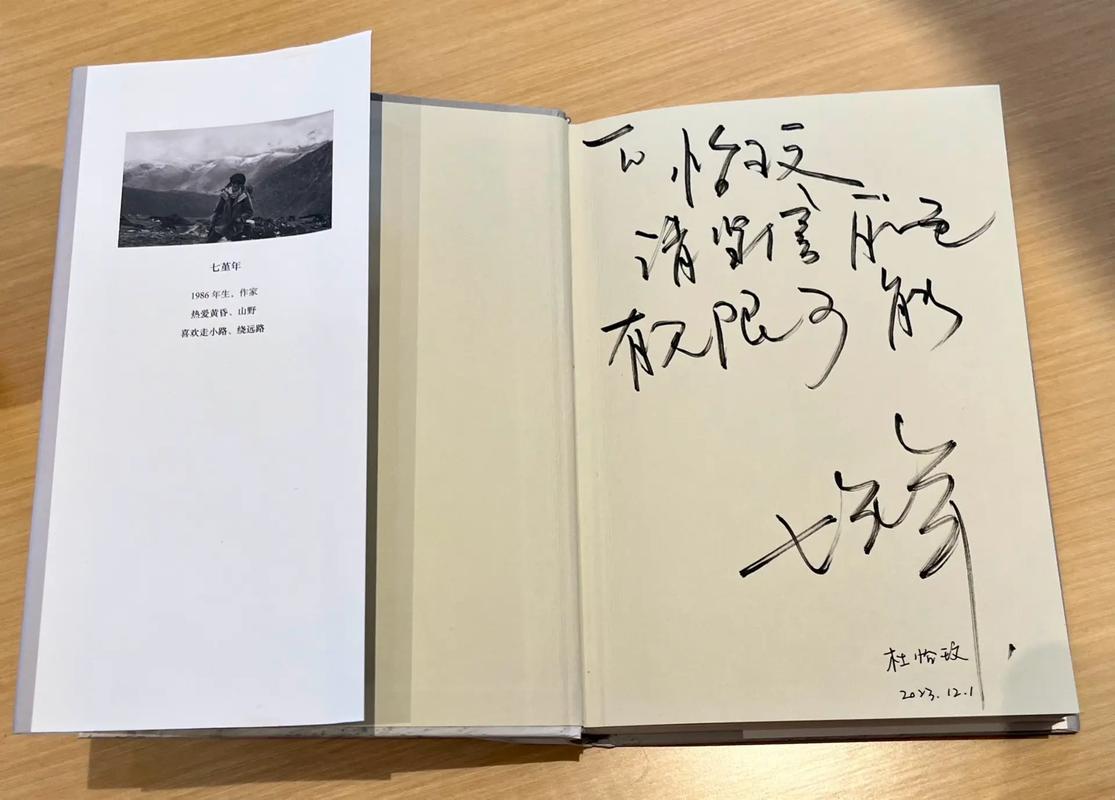 七堇年
1986 年生。作家
热爱黄昏、山野
喜欢走小路、绕远路
怡玟
请坚信
有无限可能
七堇年
杜怡玟
2023.12.1